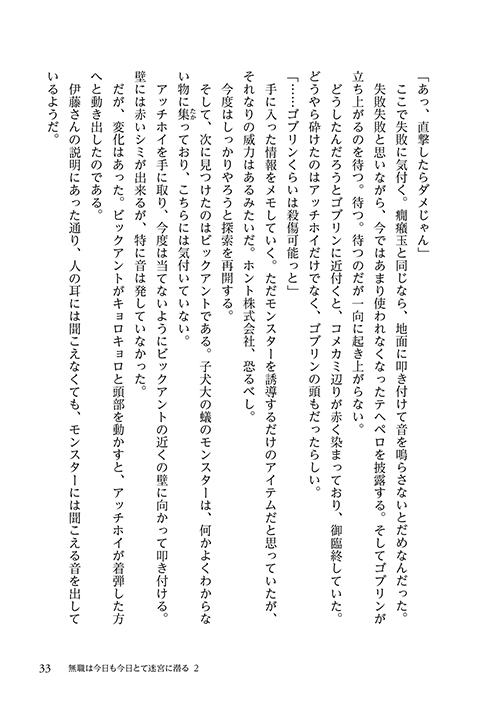 「あっ、直撃したらダメじゃん」
ここで失敗に気付く。癇癪玉と同じなら、地面に叩き付けて音を鳴らさないとだめなんだった。
失敗失敗と思いながら、今ではあまり使われなくなったテヘペロを披露する。そしてゴブリンが
立ち上がるのを待つ。待つ。待つのだが一向に起き上がらない。
どうしたんだろうとゴブリンに近付くと、コメカミ辺りが赤く染まっており、御臨終していた。
どうやら砕けたのはアッチホイだけでなく、ゴブリンの頭もだったらしい。
「……ゴブリンくらいは殺傷可能っと」
手に入った情報をメモしていく。ただモンスターを誘導するだけのアイテムだと思っていたが、
それなりの威力はあるみたいだ。ホント株式会社、恐るべし。
今度はしっかりやろうと探索を再開する。
そして、次に見つけたのはビックアントである。子犬大の蟻のモンスターは、何かよくわからな
い物に集たかっており、こちらには気付いていない。
アッチホイを手に取り、今度は当てないようにビックアントの近くの壁に向かって叩き付ける。
壁には赤いシミが出来るが、特に音は発していなかった。
だが、変化はあった。ビックアントがキョロキョロと頭部を動かすと、アッチホイが着弾した方
へと動き出したのである。
伊藤さんの説明にあった通り、人の耳には聞こえなくても、モンスターには聞こえる音を出して
いるようだ。
33 無職は今日も今日とて迷宮に潜る 2